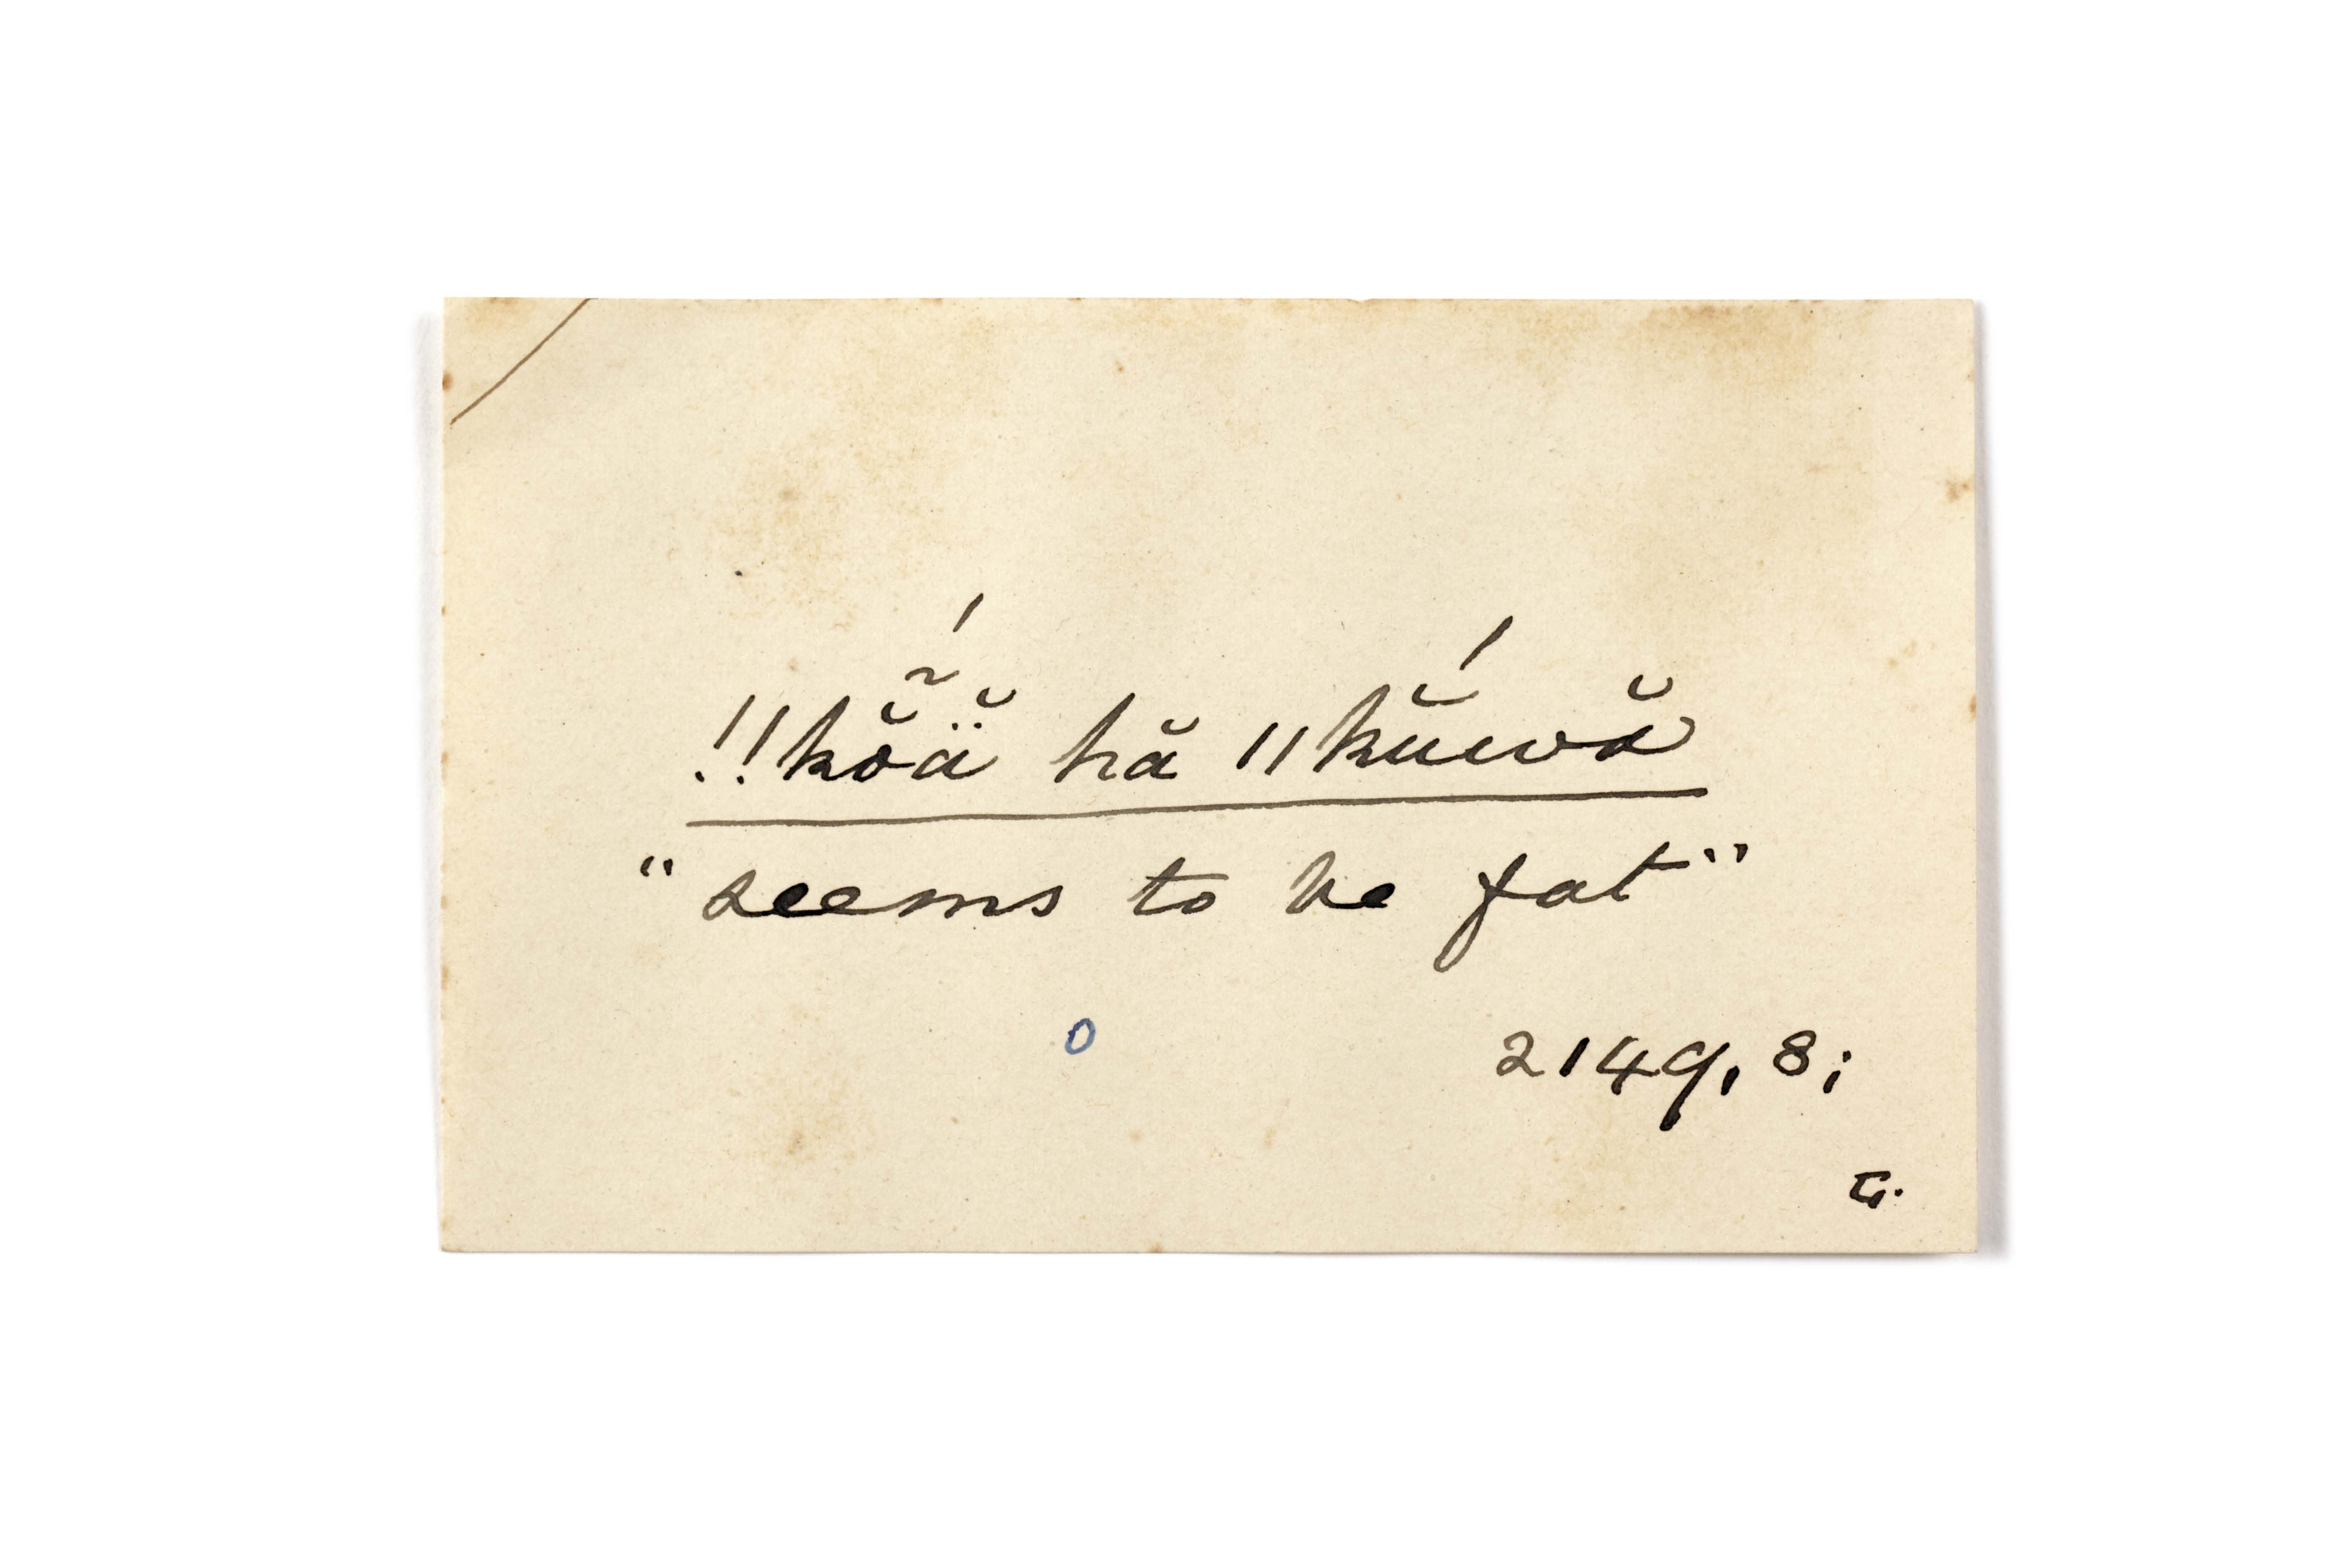 !!kŏ̃́ä̆ hă ǁkŭ́wă
"seems to be fat"
0
2149, 8;
G.